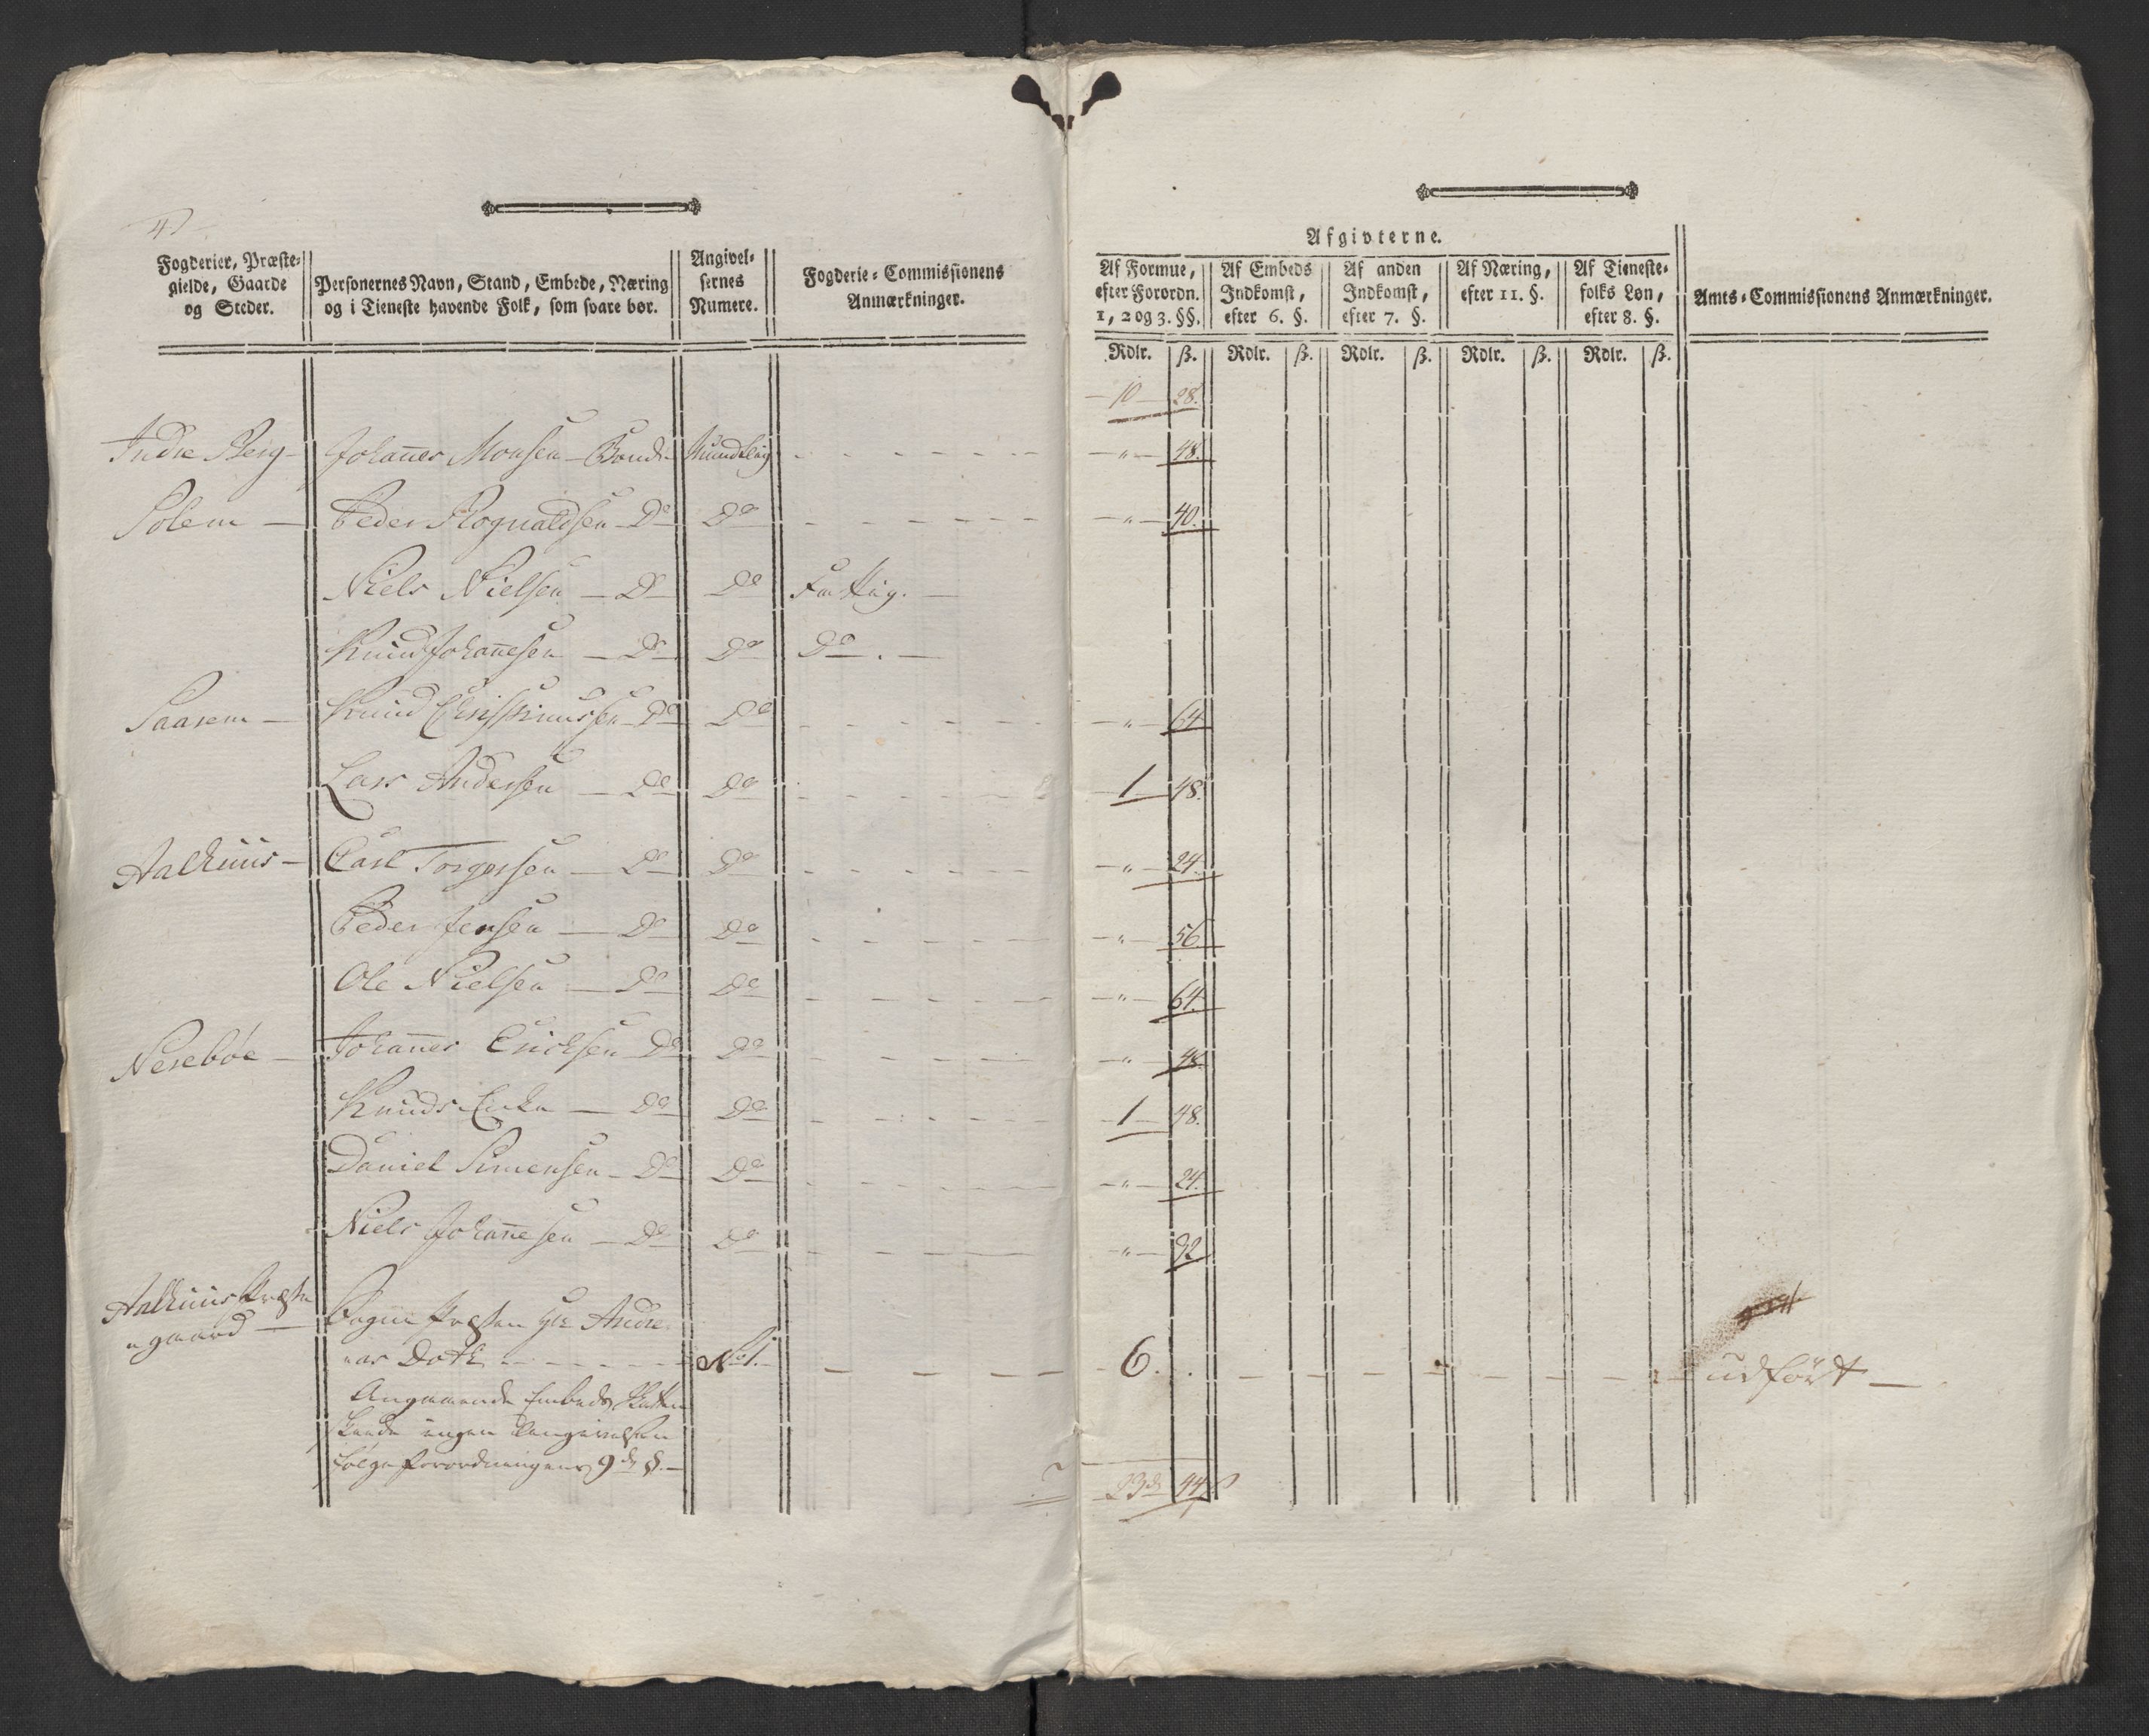 4)
Fogderier, Præste-
gielde, Gaarde
og Steder.
Personernes Navn, Stand, Embede, Næring
og i Tieneste havende Folk, som svare bør.
Angivel-
sernes
Numere.
Fogderie-Commissionens
Anmærkninger.
Afgivterne.
Af Formue,
efter Forordn.
1, 2 og 3. §§.
Af Embeds
Indkomst,
efter 6. §.
Af anden
Indkomst,
efter 7. §.
Af Næring,
efter 11. §.
Af Tieneste-
folks Løn,
efter 8. §.
Amts-Commissionens Anmærkninger.
Rdlr. ß. Rdlr. ß. Rdlr. ß. Rdlr. ß. Rdlr. ß.
10 28.
Indre Berg Johannes Monsen Bonde Mundtlig " 48.
Solem Peder Rognaldsen Do Do " 40.
Niels Nielsen Do Do Fattig.
Knud Johannesen Do Do Do.
Saarem Knud Do Do " 64
Lars Andersen Do Do 1 48.
Aalhuus Carl Torgersen Do Do " 24.
Peder Jensen Do Do " 56
Ole Nielsen Do Do " 64.
Nesebøe Johannes Erichsen Do Do " 48.
Knuds Enke Do Do 1 48.
Daniel Simensen Do Do " 24.
Niels Johannesen Do Do " 32
Aalhuus Præste
gaard
Sogne Præsten Hr Andre
as Dath No 1. 6. udført
Angaaende Embeds Skatten
skeede ingen Angivelse
følge Forordningens 9de §.
23 44